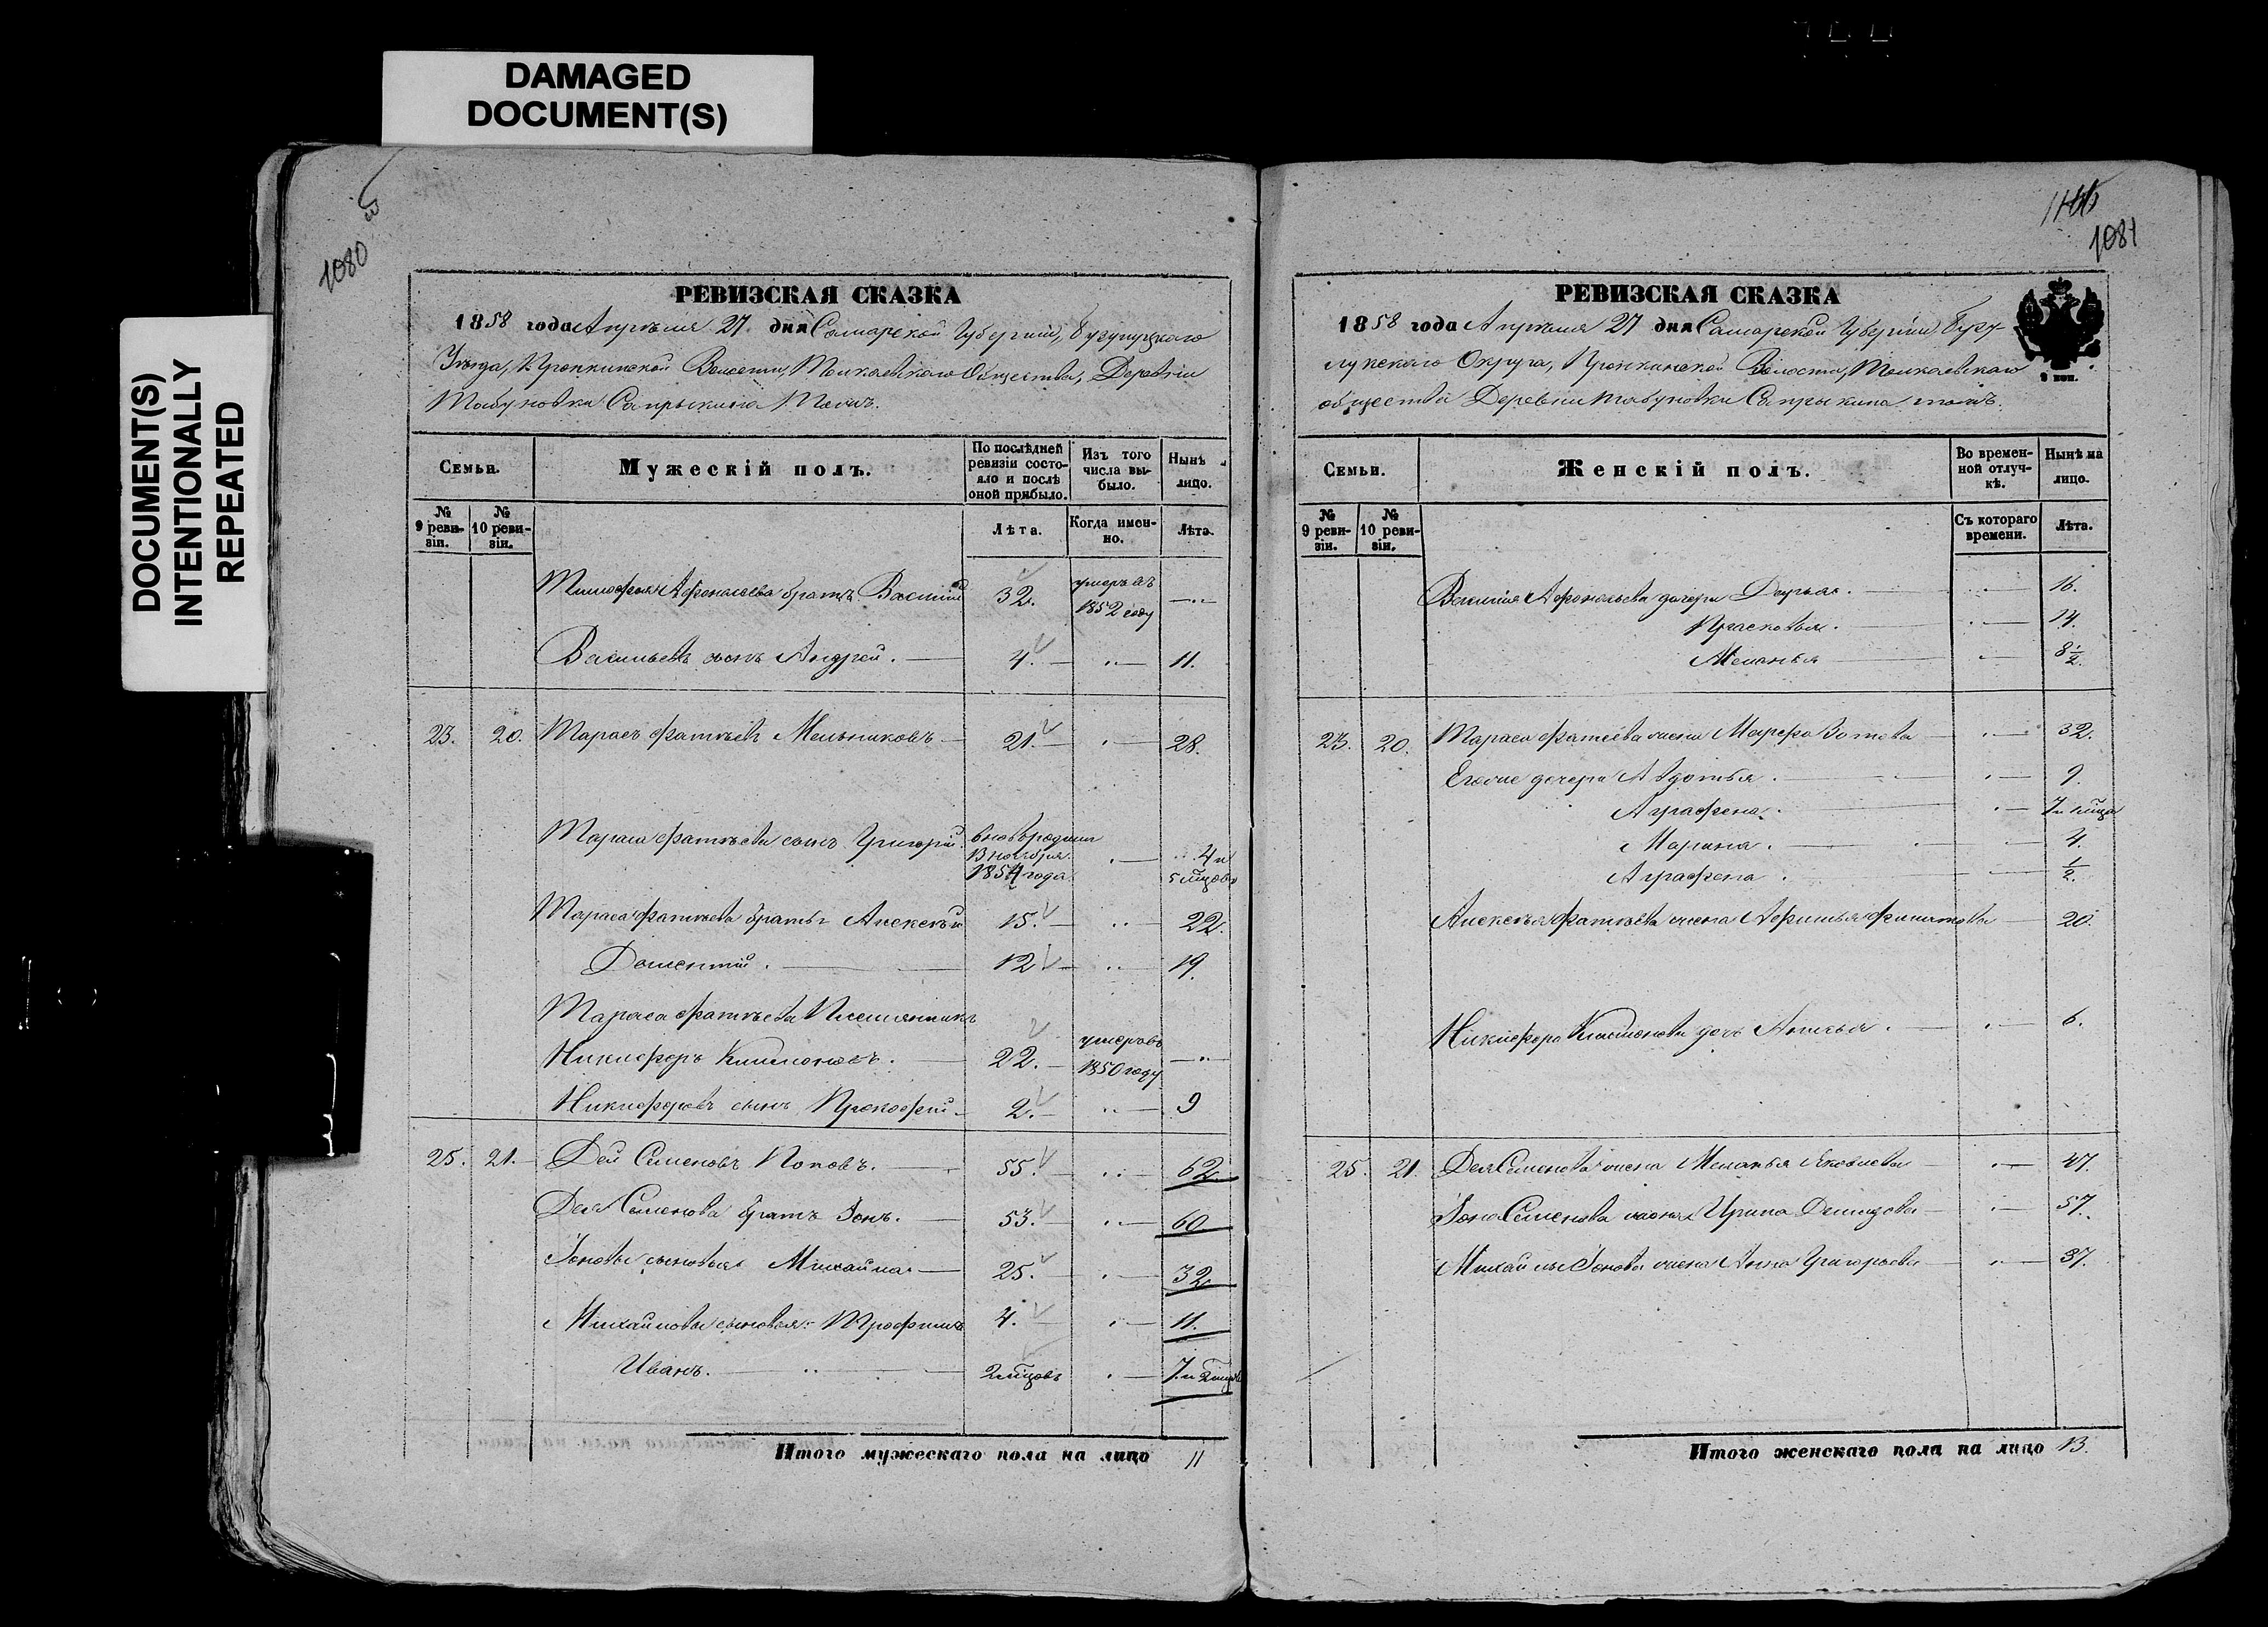 DAMAGED
DOCUMENT(S)
DOCUMENT(S)
INTENTIONALLY
REPEATED
1080
РЕВИЗСКАЯ СКАЗКА
1858 года Апрѣля 27 дня Самарской Губерніи, Бузулуцкаго
Уѣзда, Пронкинской Волости, Общества, Деревни
Табуновки Сапрыкина тожъ.
Семьи.
Мужескій полъ.
По послѣдней ревизіи состояло и послѣ оной прибыло.
Изъ того числа выбыло.
Нынѣ лицо.
№ 9 ревизіи.
№ 10 ревизіи.
Лѣта.
Когда именно.
Лѣта.
Тимофея Афонасьева братъ Василій 32. умеръ въ 1852 году
Васильевъ сынъ Андрей. 4. 11.
23. 20. Тарасъ Фатѣевъ Мельниковъ 21. 28.
Тараса Фатѣева сынъ Григорій. вновь родился 13 ноября 1854 года 4 и 5 мцовъ
Тараса Фатѣева братья Алексѣй 15. 22.
Дементій. 12 19.
Тараса Фатѣева Племянникъ
Никифоръ 22. умеръ въ 1850 году
Никифоровъ сынъ Прокофій 2. 9
25. 21. Дей Семеновъ Поповъ. 55. 62.
Дея Семенова братъ Іонъ. 53. 60
Іоновы сыновья Михайла 25. 32
Михайловы сыновья: Трофимъ 4. 11.
Иванъ. 2 мцовъ 7. и 2 мцов
Итого мужескаго пола на лицо 11
1081
РЕВИЗСКАЯ СКАЗКА
1858 года Апрѣля 27 дня Самарской Губерніи Бузу-
лукскаго Округа, Пронкинской Волости,
общества Деревни Табуновки Сапрыкина тожъ.
9 коп.
Семьи.
Женскій полъ.
Во временной отлучкѣ.
Нынѣ на лицо.
№ 9 ревизіи.
№ 10 ревизіи.
Съ котораго времени.
Лѣта.
Василія Афонасьева дочери Дарья. 16.
Прасковья. 14.
Меланья 8 1/2.
23. 20. Тараса Фатѣева жена Марфа Зотова 32.
Его же дочери Авдотья. 9.
Аграфена. 7 и мцв
Марина. 4.
Аграфена. 1/2.
Алексѣя Фатѣева жена Афимья Филатова 20.
Никифора дочь 6.
25. 21. Дея Семенова жена Меланья Яковлева 47.
Іона Семенова жена Ирина Демидова 57.
Михайлы Іонова жена Анна Григорьева 37.
Итого женскаго пола на лицо 13.